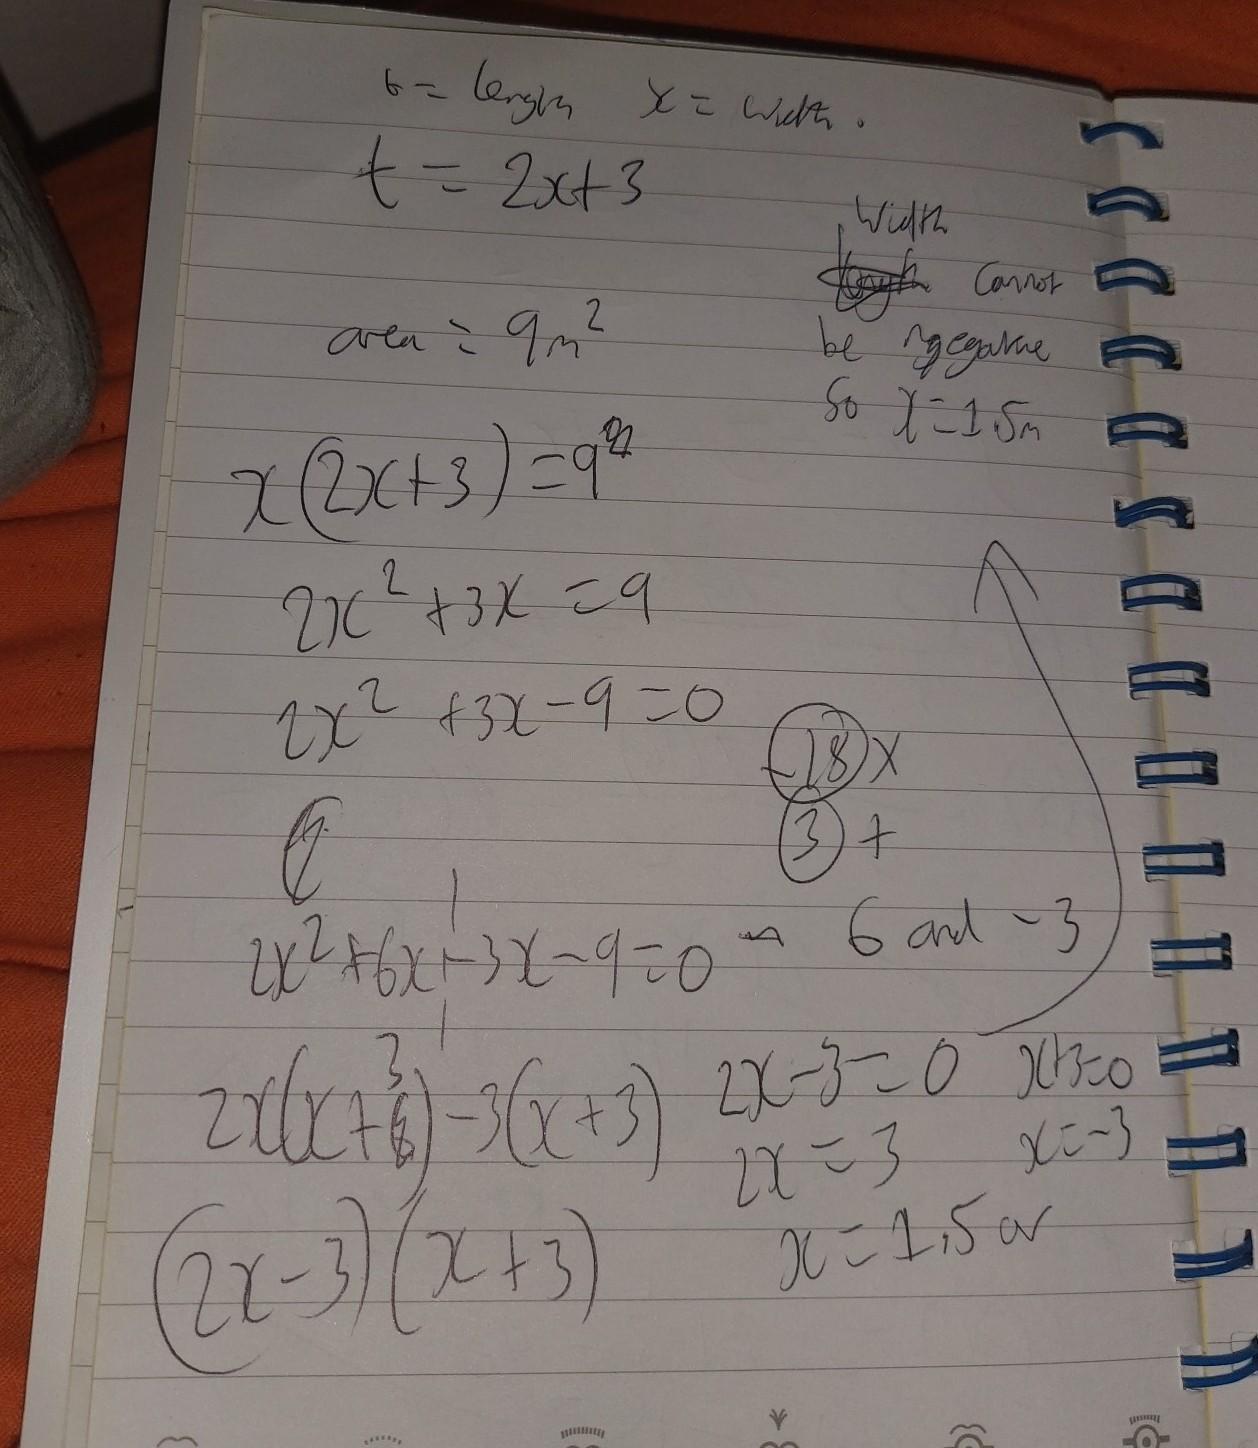 t = length x = width.
t = 2x+3
area = 9m²
x(2x+3) = 9
2x² + 3x = 9
2x² + 3x - 9 = 0
-18 x
3 +
2x² + 6x + -3x - 9 = 0 6 and -3
2x(x+3) - 3(x+3)
(2x-3)(x+3)
2x-3 = 0 x+3=0
2x = 3 x=-3
x = 1.5 or
Width
cannot
be ngegative
So x = 1.5m